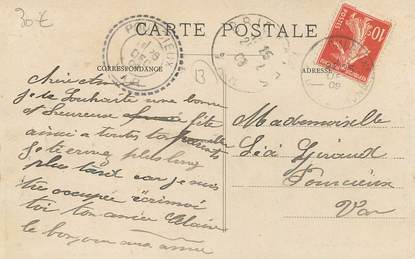 30€
CARTE POSTALE
CORRESPONDANCE
ADRESSE
POSTES
10c
13
je te Souhaite une bonne
et heureuse fête
ainsi a toute ta parents
je t'ecrirai plus long
plus tard car je suis
très occupée
toi ton amie Claire
le bonjour aux amies
Mademoiselle
Léa Giraud
Pourcieux
Var